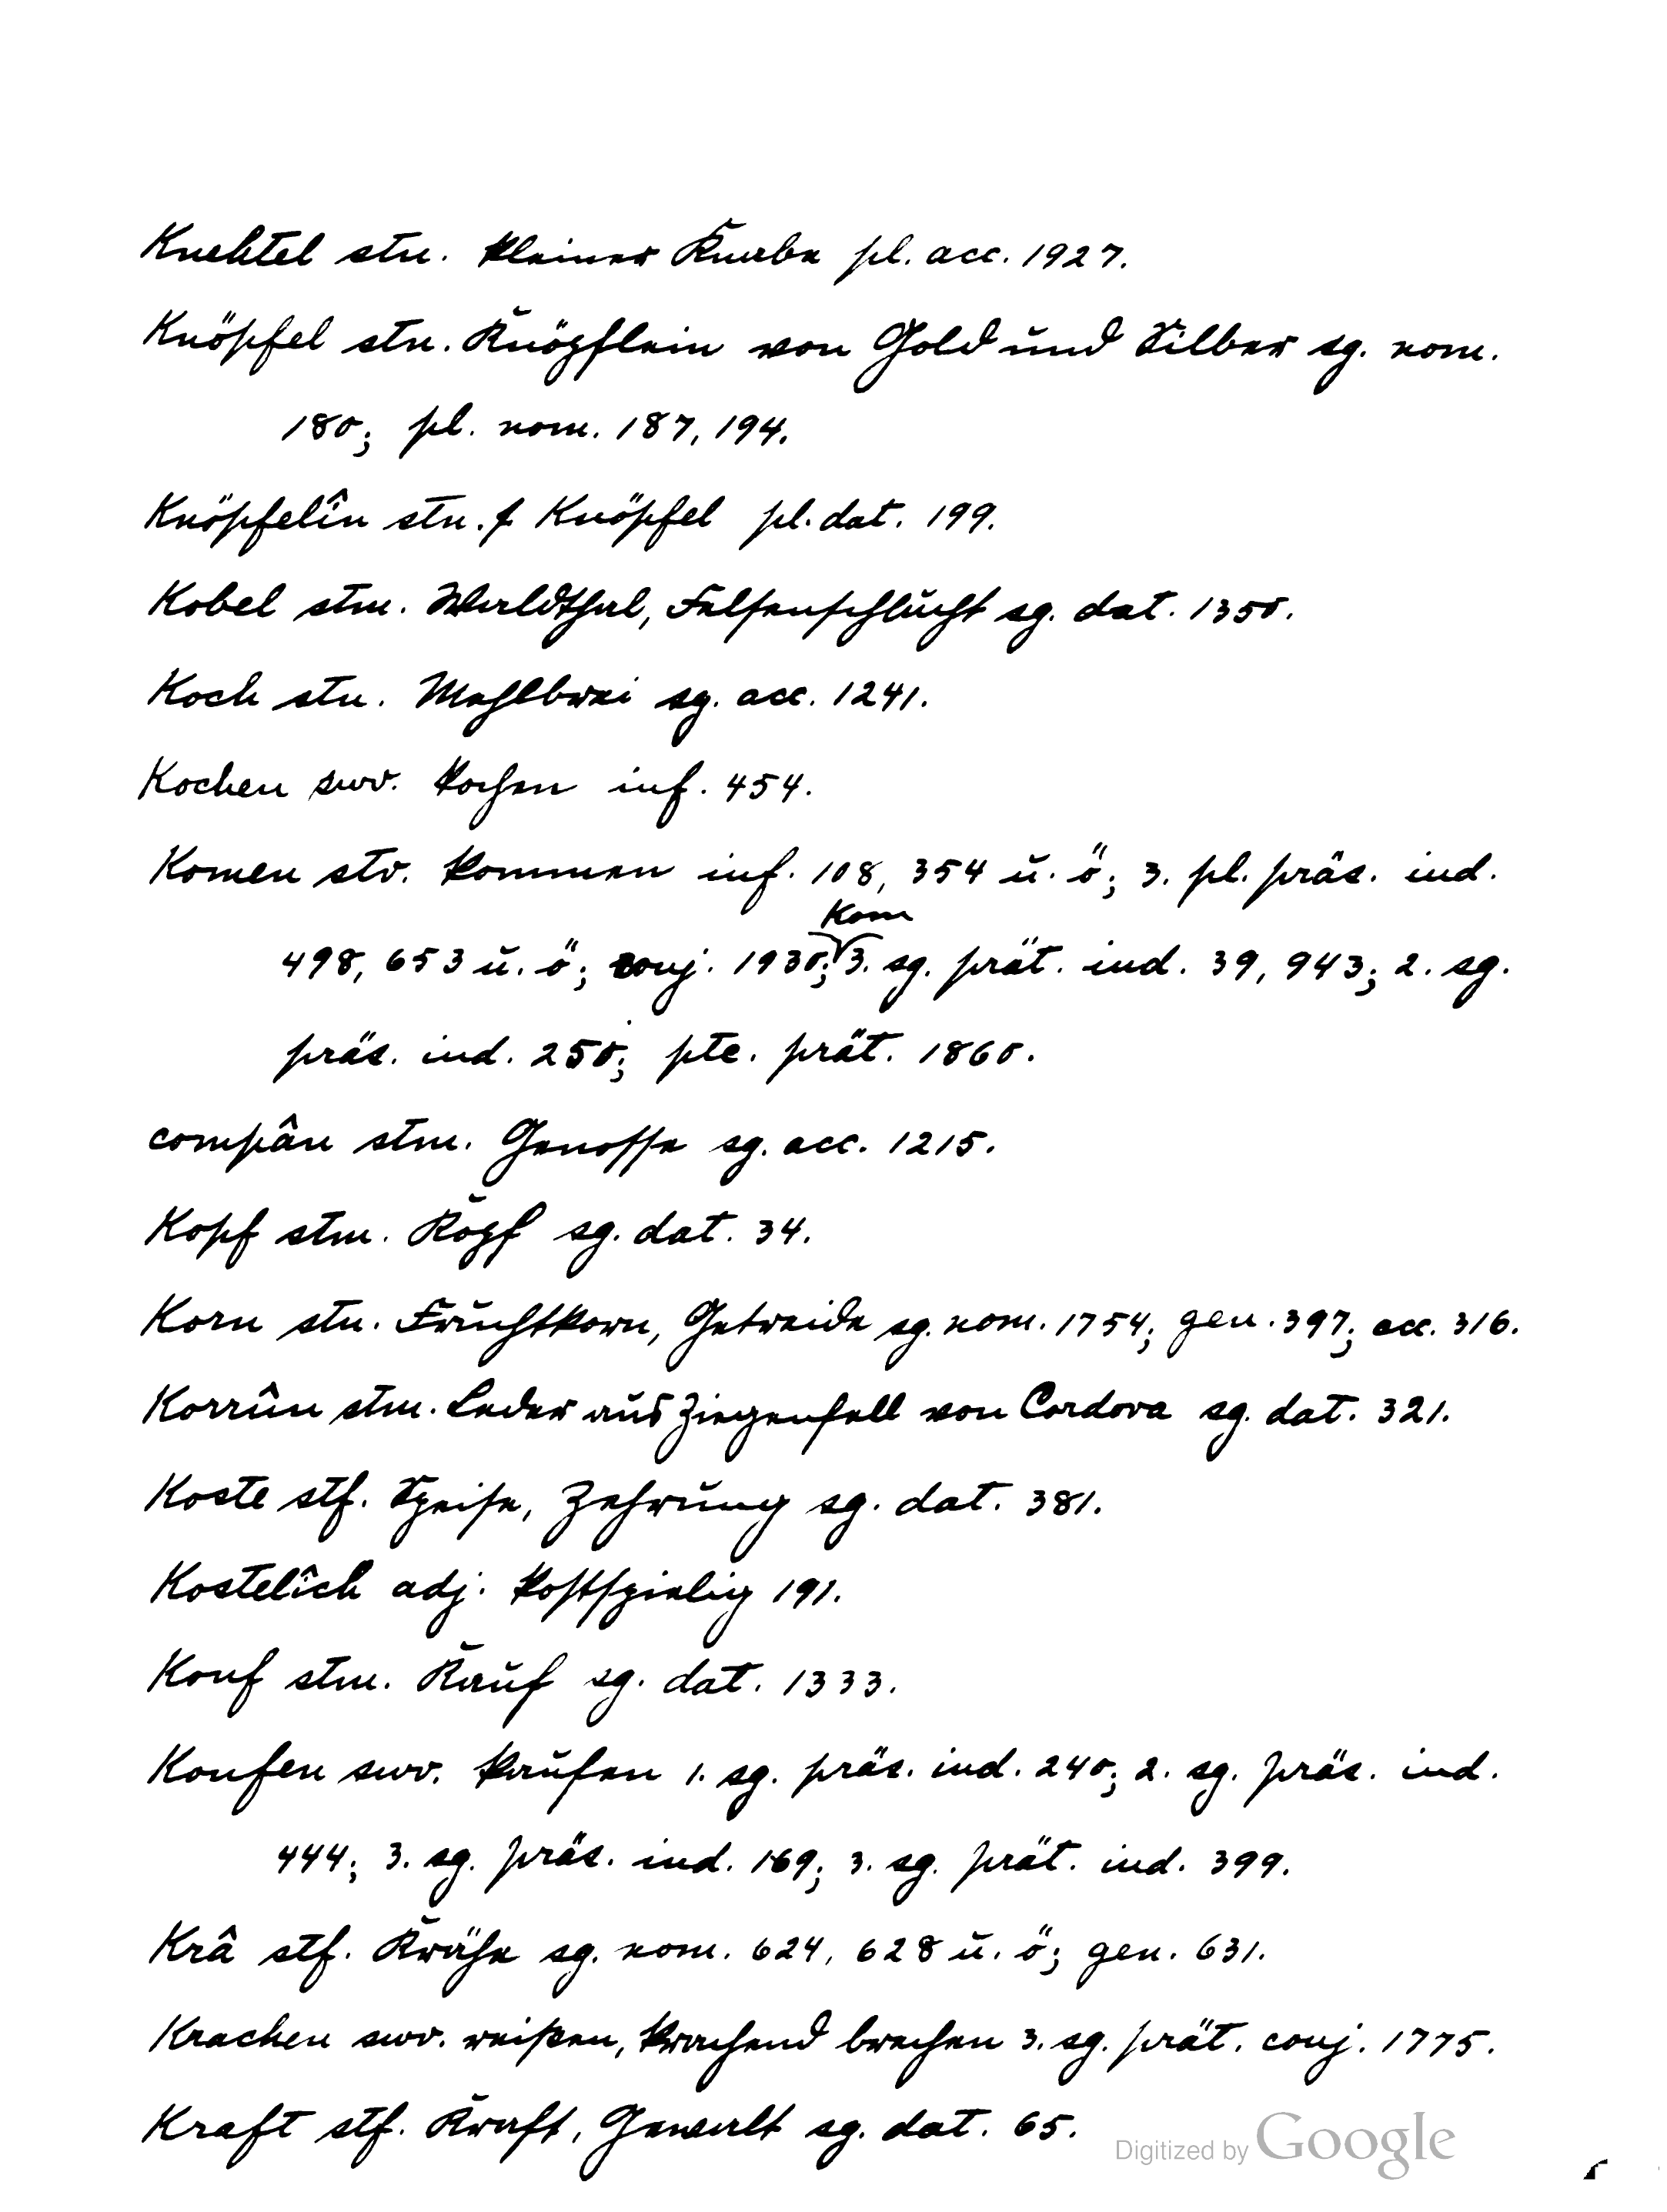 Knehtel stn. kleiner Knabe pl. acc. 1927.
Knöpfel stn. Knöpflein von Gold und Silber sg. nom.
180; pl. nom. 187, 194.
Knöpfelîn stn. f Knöpfel pl. dat. 199.
Kobel stm. Waldthal, Felsenschlucht sg. dat. 1350.
Koch stn. Mehlbrei sg. acc. 1241.
Kochen swv. kochen inf. 454.
Komen stv. kommen inf. 108, 354 u. ö; 3. pl. präs. ind.
Kom
498, 653 u. ö; conj. 1930; 3. sg. prät. ind. 39, 943; 2. sg.
präs. ind. 250; pte. prät. 1860.
compân stm. Genosse sg. acc. 1215.
Kopf stm. Kopf sg. dat. 34.
Korn stn. Fruchtkorn, Getreide sg. nom. 1754; gen. 397; acc. 316.
Korrûn stm. Leder aus Ziegenfell von Cordova sg. dat. 321.
Koste stf. Speise, Zehrung sg. dat. 381.
Kostelîch adj. kostspielig 191.
Kouf stm. Kauf sg. dat. 1333.
Koufen swv. kaufen 1. sg. präs. ind. 240; 2. sg. präs. ind.
444; 3. sg. präs. ind. 169; 3. sg. prät. ind. 399.
Krâ stf. Krähe sg. nom. 624, 628 u. ö; gen. 631.
Krachen swv. reißen, krachend brechen 3. sg. prät. conj. 1775.
Kraft stf. Kraft, Gewalt sg. dat. 65.
Digitized by Google